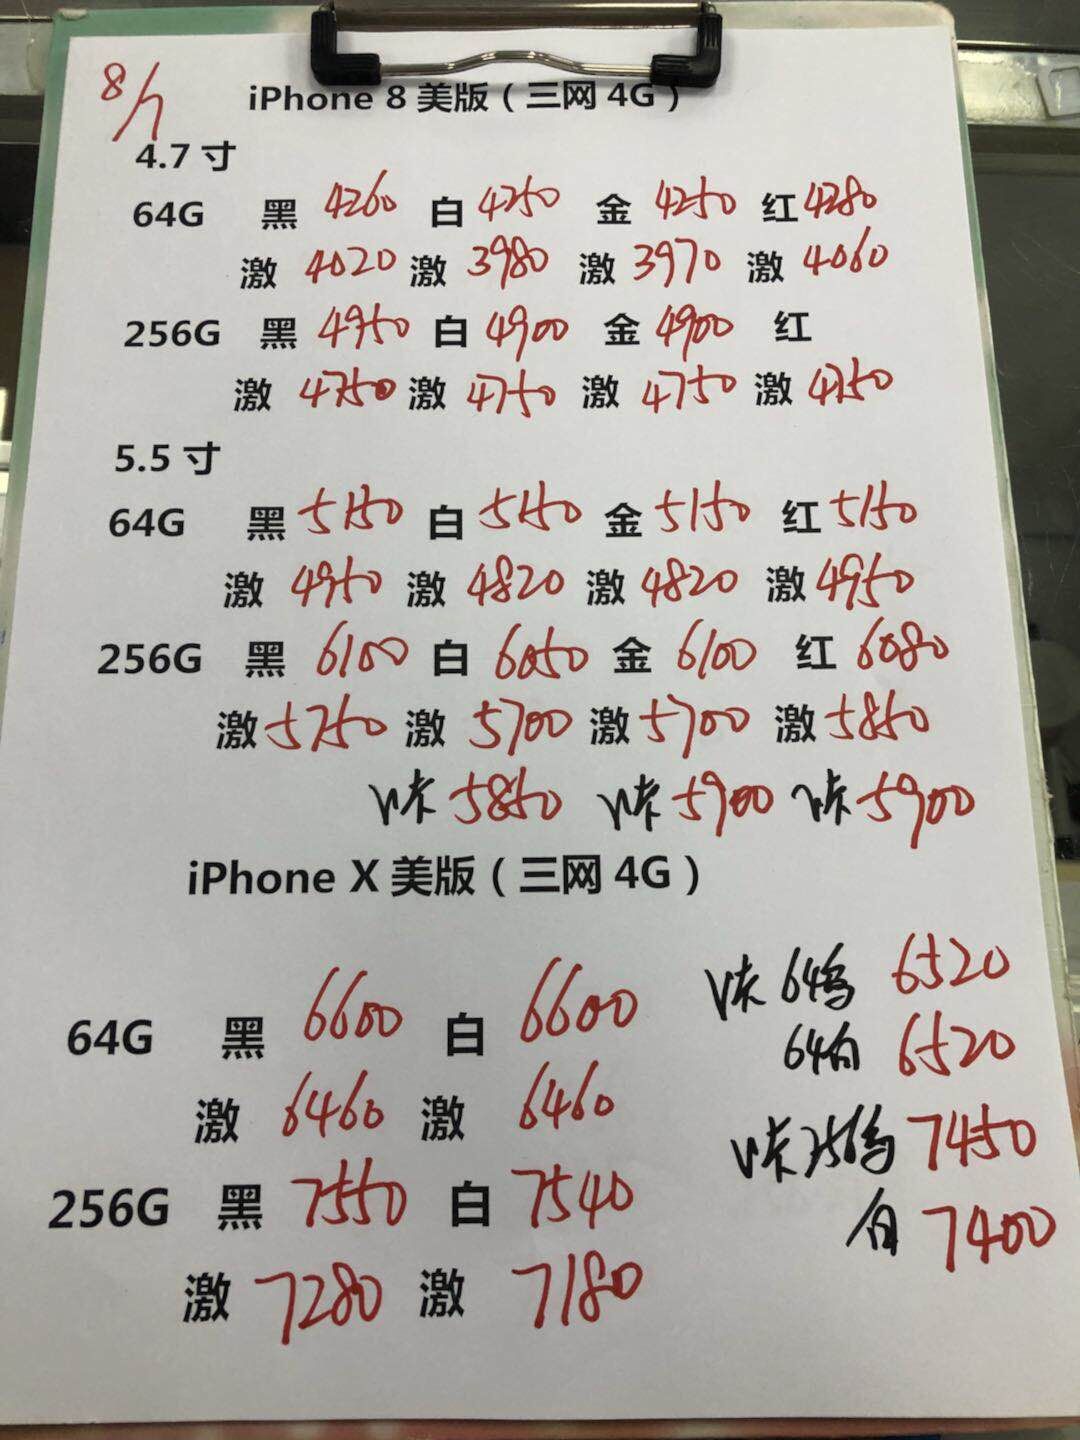 8/7
iPhone 8 美版（三网 4G）
4.7 寸
64G 黑 4260 白 4250 金 4250 红 4280
激 4020 激 3980 激 3970 激 4060
256G 黑 4950 白 4900 金 4900 红
激 4750 激 4750 激 4750 激 4750
5.5 寸
64G 黑 5150 白 5150 金 5150 红 5150
激 4950 激 4820 激 4820 激 4950
256G 黑 6100 白 6050 金 6100 红 6080
激 5750 激 5700 激 5700 激 5850
卡 5850 卡 5900 卡 5900
iPhone X 美版（三网 4G）
64G 黑 6600 白 6600
激 6460 激 6460
256G 黑 7550 白 7540
激 7280 激 7180
卡 64 6520
64白 6520
卡 256 7450
白 7400